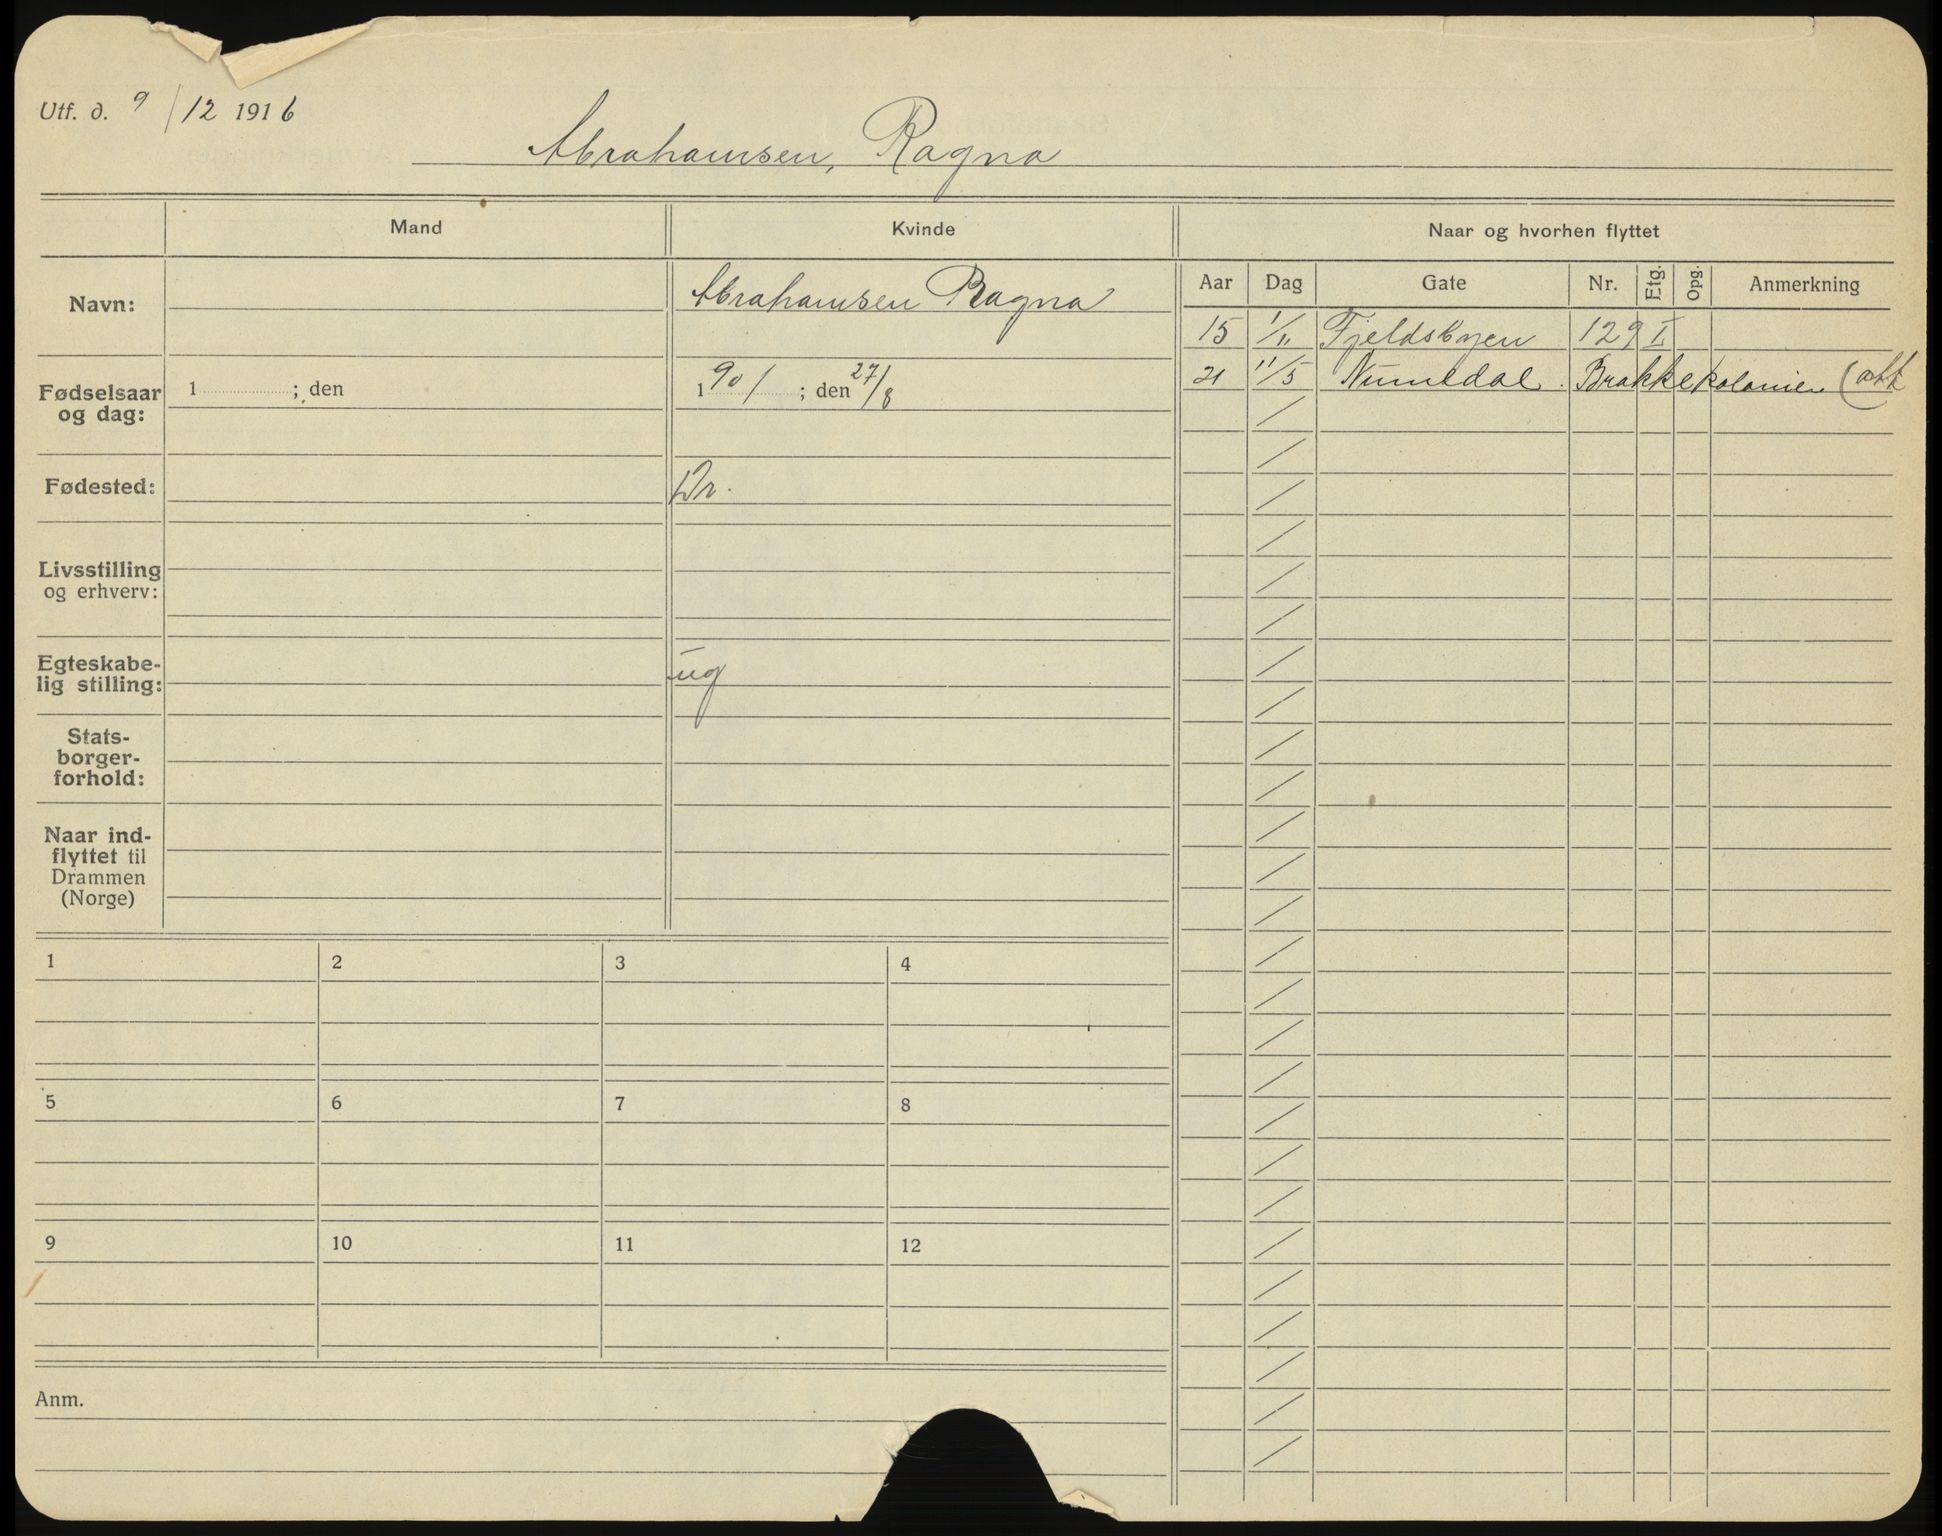 Utf. d. 9/12 1916
Abrahamsen, Ragna
Mand
Kvinde
Naar og hvorhen flyttet
Aar Dag Gate Nr. Etg. Opg. Anmerkning
Navn: Abrahamsen Ragna
15 1/11 Fjeldsbyen 129 I
21 11/5 Numedal. Brakkekolonien (att
Fødselsaar
og dag:
1 ; den
1901 ; den 27/8
Fødested: Dr.
Livsstilling
og erhverv:
Egteskabe-
lig stilling:
ug
Stats-
borger-
forhold:
Naar ind-
flyttet til
Drammen
(Norge)
1 2 3 4
5 6 7 8
9 10 11 12
Anm.